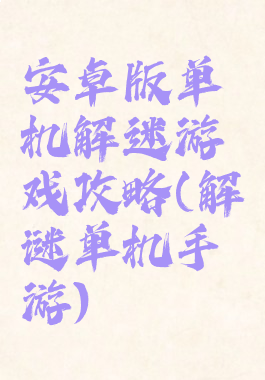 安卓版单
机解迷游
戏攻略(解
谜单机手
游)